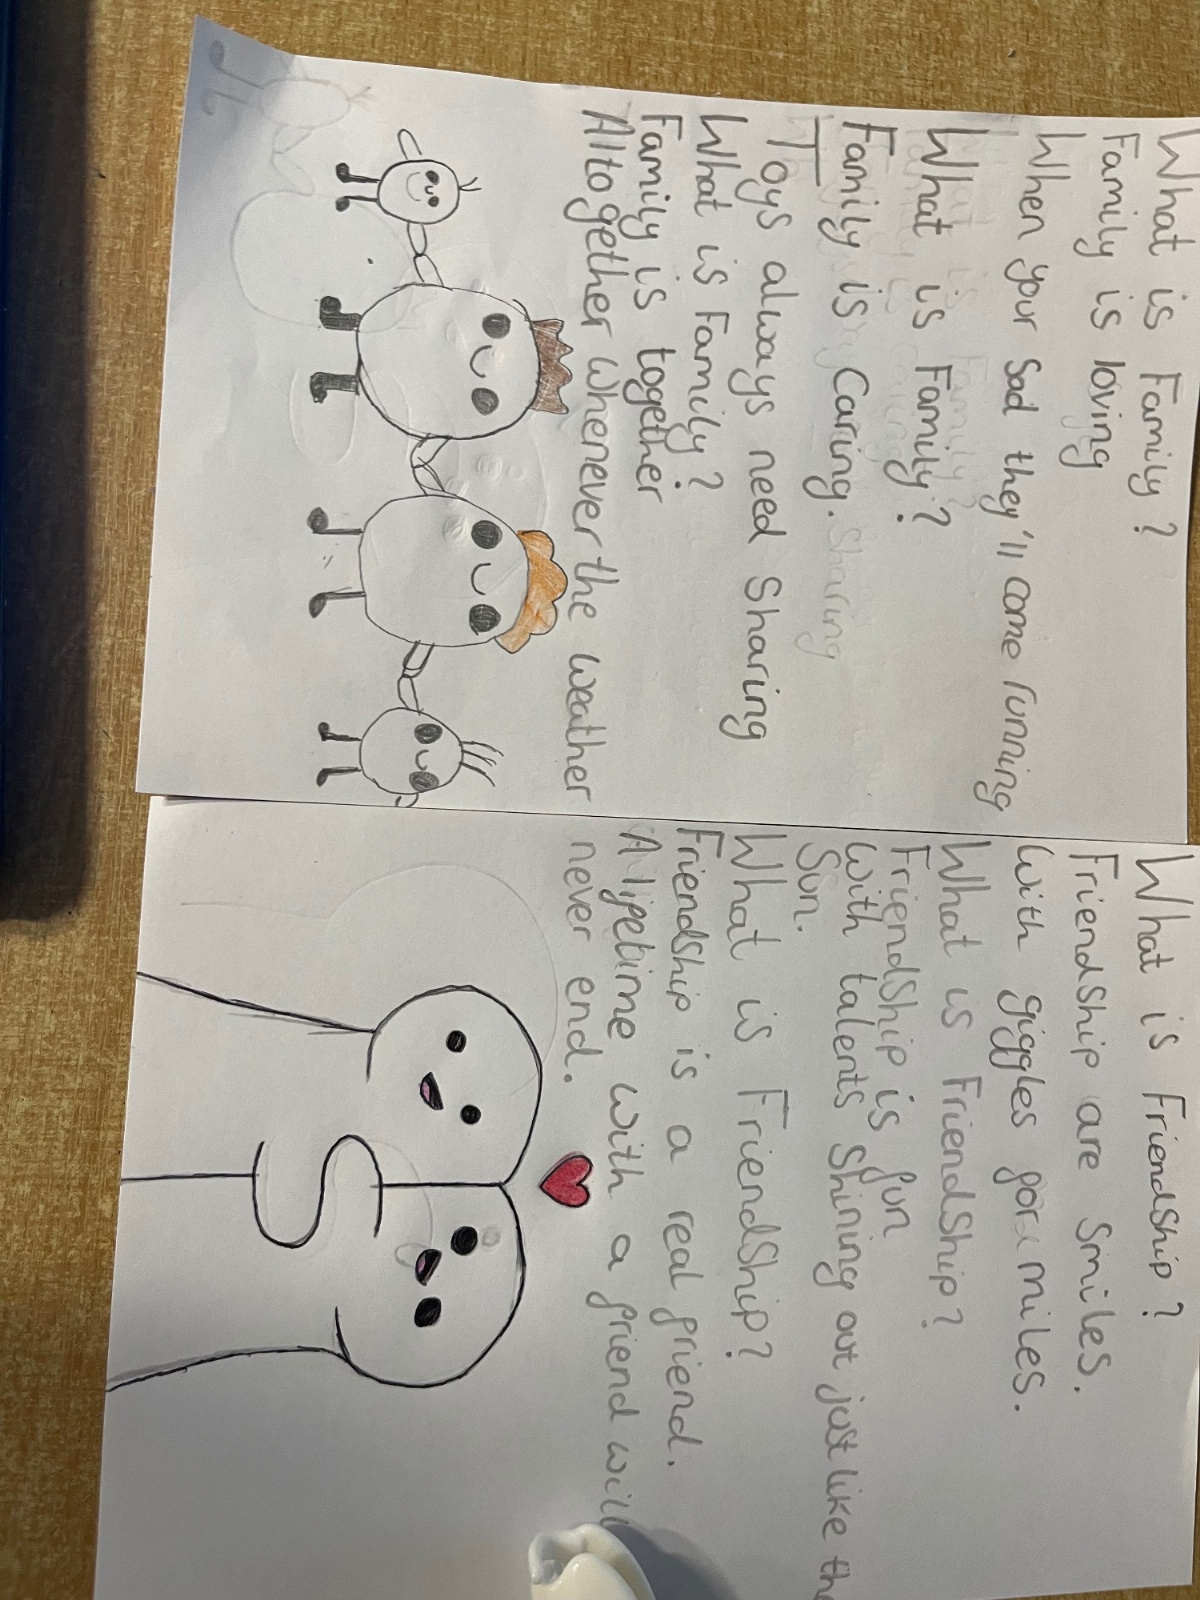 What is Family?
Family is loving
When your sad they'll come running
What is Family?
Family is Caring. Sharing
Toys always need Sharing
What is Family?
Family is together
Altogether whenever the weather
What is Friendship?
Friendship are smiles.
With giggles for miles.
What is Friendship?
Friendship is fun
With talents Shining out just like the
Sun.
What is Friendship?
Friendship is a real friend.
A lifetime with a friend will
never end.